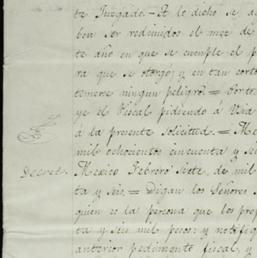 te Juzgado.- A lo dicho se a
bea ser redimidos el mes de
te año en que se cumple el p
ra que se otorgo; y en tan corto
temerse ningun peligro.= Por tr
ye el Fiscal pidiendo á Usia
á la presente solicitud.= Me
mil ochocientos cincuenta y sei
Decreto. Mexico Febrero siete, de mil
ta y seis.= Digan los Señores
quien es la persona que los pro
ta y seis mil pesos y notifiq
anterior pedimento fiscal, y